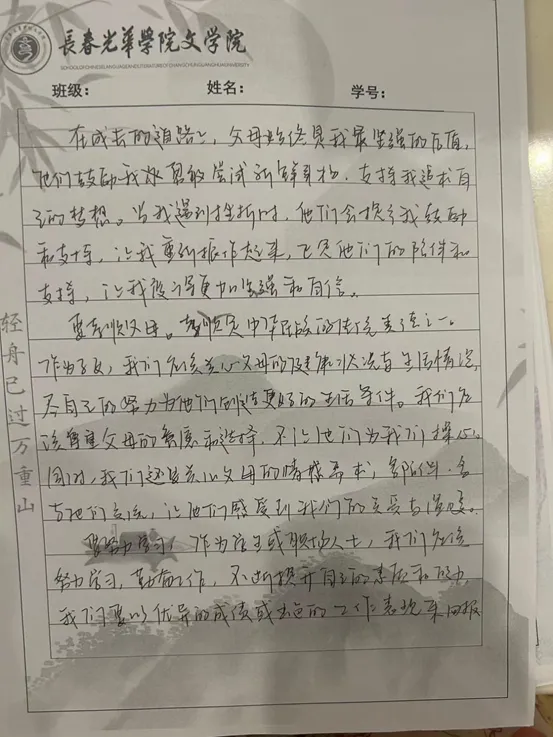 長春光華學院文學院
SCHOOL OF CHINESE LANGUAGE AND LITERATURE OF CHANGCHUN GUANGHUA UNIVERSITY
班级： 姓名： 学号：
在成长的道路上，父母始终是我最坚强的后盾，
他们鼓励我勇敢尝试新鲜事物，支持我追求自
己的梦想。当我遇到挫折时，他们会给予我鼓励
和支持，让我重新振作起来，正是他们的陪伴和
支持，让我变得更加坚强和自信。
要孝顺父母。孝顺是中华民族的传统美德之一。
作为子女，我们应该关心父母的健康状况与生活情况，
尽自己的努力为他们创造更好的生活条件。我们应
该尊重父母的意愿和选择，不让他们为我们操心。
同时，我们还要关心父母的情感需求，多陪伴、多
与他们交流，让他们感受到我们的关爱与温暖。
要努力学习，作为学生或职场人士，我们应该
努力学习，勤奋工作，不断提升自己的素质和能力
我们要以优异的成绩或出色的工作表现来回报
轻舟已过万重山